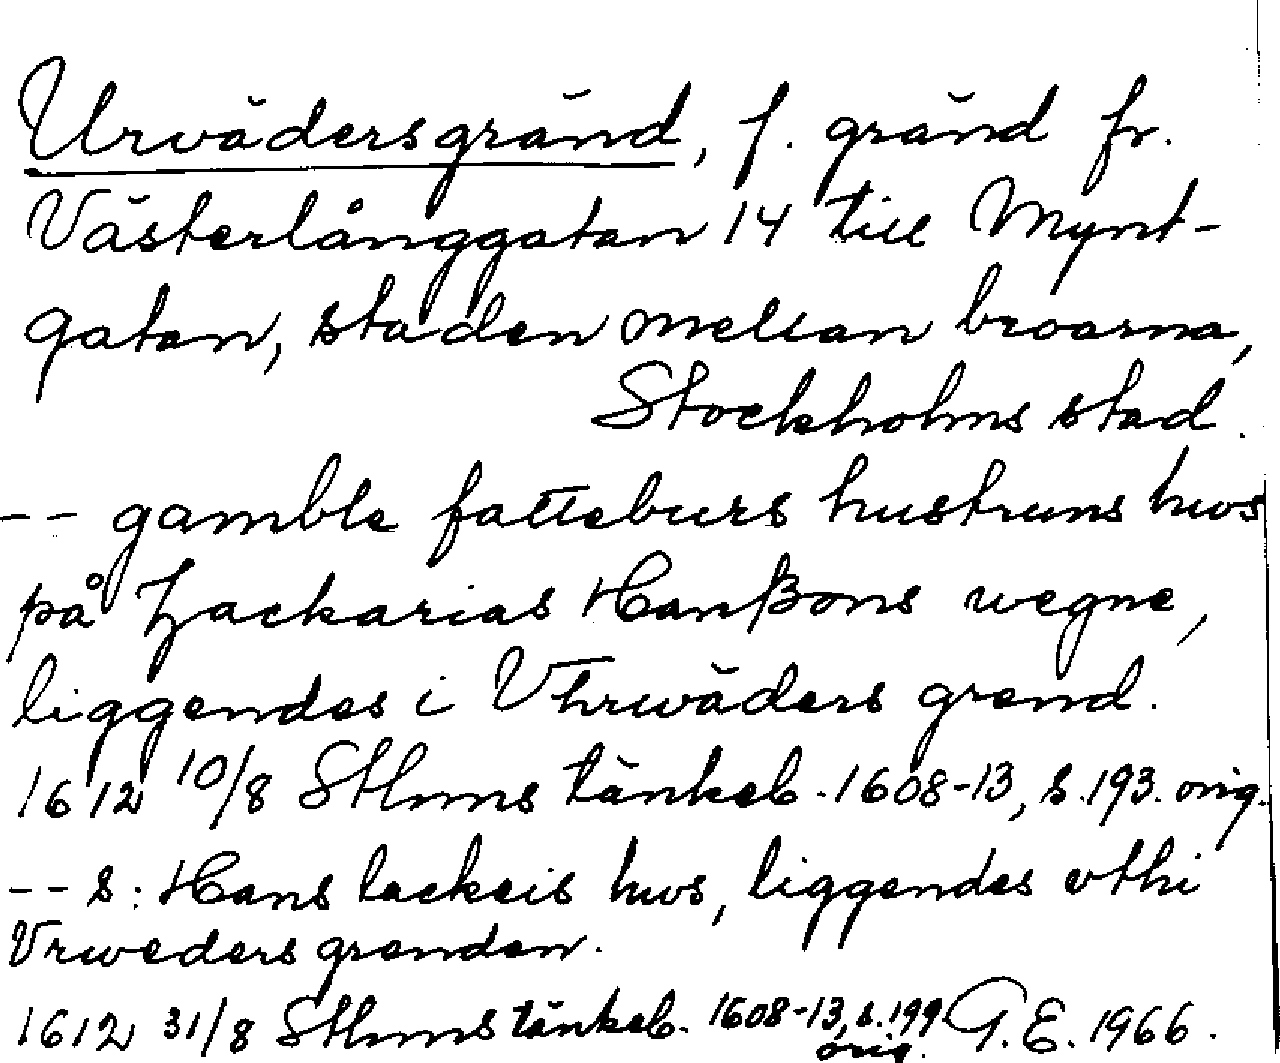 Urvädersgränd, f. gränd fr.
Västerlånggatan 14 till Mynt-
gatan, staden mellan broarna,
Stockholms stad.
-- gamble fatteburs hustruns hws
på Zackarias Hanßons wegne,
liggendes i Vthrwäders grend.
1612 10/8 Sthlms tänkeb. 1608-13, s. 193. orig.
-- s: Hans lackeis hws, liggendes vthi
Vrweders grenden.
1612 31/8 Sthlms tänkeb. 1608-13, s. 199 orig. G.E. 1966.